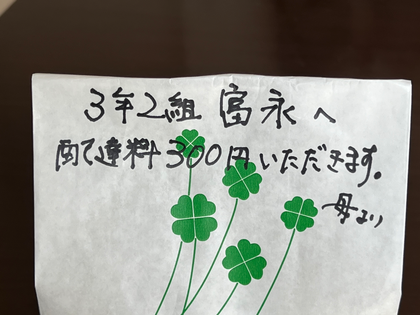 3年2組 富永へ
配達料300円いただきます。
母より